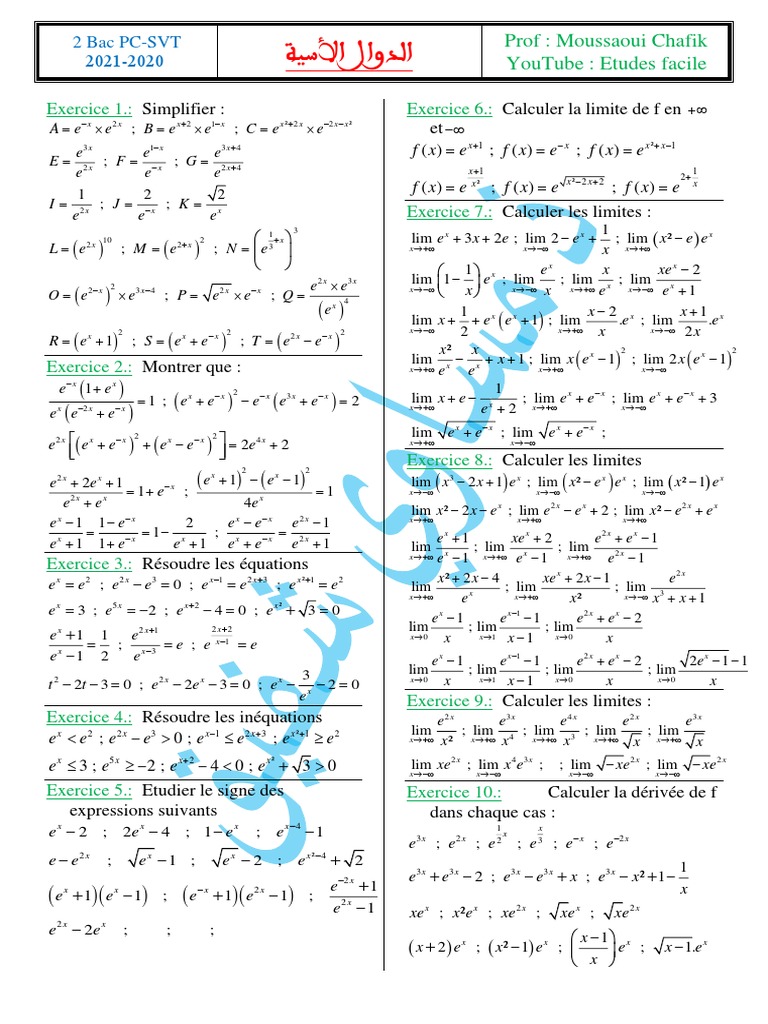 2 Bac PC-SVT
2021-2020
الدوال الأسية
Prof : Moussaoui Chafik
YouTube : Etudes facile
Exercice 1.: Simplifier :
A = e⁻ˣ × e²ˣ ; B = eˣ⁺² × e¹⁻ˣ ; C = e^(x²+2x) × e^(−2x−x²)
E = e³ˣ/e²ˣ ; F = e¹⁻ˣ/e⁻ˣ ; G = e³ˣ⁺⁴/e²ˣ⁺⁴
I = 1/e²ˣ ; J = 2/e⁻ˣ ; K = √2/eˣ
L = (e²ˣ)¹⁰ ; M = (e²⁺ˣ)² ; N = (e^(1/3+x))³
O = (e²⁻ˣ)² × e³ˣ⁻⁴ ; P = √(e²ˣ) × e⁻ˣ ; Q = (e²ˣ × e³ˣ)/(eˣ)⁴
R = (eˣ + 1)² ; S = (eˣ + e⁻ˣ)² ; T = (e²ˣ − e⁻ˣ)²
Exercice 2.: Montrer que :
e⁻ˣ(1 + eˣ)/(eˣ(e⁻²ˣ + e⁻ˣ)) = 1 ; (eˣ + e⁻ˣ)² − e⁻ˣ(e³ˣ + e⁻ˣ) = 2
e²ˣ[(eˣ + e⁻ˣ)² + (eˣ − e⁻ˣ)²] = 2e⁴ˣ + 2
(e²ˣ + 2eˣ + 1)/(e²ˣ + eˣ) = 1 + e⁻ˣ ; ((eˣ + 1)² − (eˣ − 1)²)/(4eˣ) = 1
(eˣ − 1)/(eˣ + 1) = (1 − e⁻ˣ)/(1 + e⁻ˣ) = 1 − 2/(eˣ + 1) ; (eˣ − e⁻ˣ)/(eˣ + e⁻ˣ) = (e²ˣ − 1)/(e²ˣ + 1)
Exercice 3.: Résoudre les équations
eˣ = e² ; e²ˣ − e³ = 0 ; eˣ⁻¹ = e²ˣ⁺³ ; e^(x²+1) = e²
eˣ = 3 ; e⁵ˣ = −2 ; eˣ⁺² − 4 = 0 ; e^(x²) + √3 = 0
(eˣ + 1)/(eˣ − 1) = 1/2 ; e²ˣ⁺¹/eˣ⁻³ = e ; e^((2x+2)/(x−1)) = e
t² − 2t − 3 = 0 ; e²ˣ − 2eˣ − 3 = 0 ; eˣ − 3/eˣ − 2 = 0
Exercice 4.: Résoudre les inéquations
eˣ < e² ; e²ˣ − e³ > 0 ; eˣ⁻¹ ≤ e²ˣ⁺³ ; e^(x²+1) ≥ e²
eˣ ≤ 3 ; e⁵ˣ ≥ −2 ; eˣ⁺² − 4 < 0 ; e^(x²) + √3 > 0
Exercice 5.: Etudier le signe des
expressions suivants
eˣ − 2 ; 2eˣ − 4 ; 1 − eˣ ; eˣ⁻⁴ − 1
e − e²ˣ ; √(eˣ) − 1 ; √(eˣ) − 2 ; e^(x²−4) + √2
(eˣ + 1)(eˣ − 1) ; (e⁻ˣ + 1)(e²ˣ − 1) ; (e⁻²ˣ + 1)/(e²ˣ − 1)
e²ˣ − 2eˣ ; ; ;
Exercice 6.: Calculer la limite de f en +∞
et −∞
f(x) = eˣ⁺¹ ; f(x) = e⁻ˣ ; f(x) = e^(x²+x−1)
f(x) = e^((x+1)/x²) ; f(x) = e^(√(x²−2x+2)) ; f(x) = e^(2+1/x)
Exercice 7.: Calculer les limites :
lim x→+∞ eˣ + 3x + 2e ; lim x→−∞ 2 − eˣ + 1/x ; lim x→+∞ (x² − e)eˣ
lim x→−∞ (1 − 1/x)eˣ ; lim x→−∞ eˣ/x ; lim x→+∞ x/eˣ ; lim x→−∞ (xeˣ − 2)/(eˣ + 1)
lim x→−∞ x + 1/2 + eˣ(eˣ + 1) ; lim x→+∞ (x − 2)/x .eˣ ; lim x→−∞ (x + 1)/2x .eˣ
lim x→+∞ x²/eˣ − x/eˣ + x + 1 ; lim x→+∞ x(eˣ − 1)² ; lim x→−∞ 2x(eˣ − 1)²
lim x→+∞ x + e − 1/(eˣ + 2) ; lim x→+∞ eˣ + e⁻ˣ ; lim x→−∞ eˣ + e⁻ˣ + 3
lim x→+∞ √(eˣ + e⁻ˣ) ; lim x→−∞ √(eˣ + e⁻ˣ) ;
Exercice 8.: Calculer les limites
lim x→−∞ (x³ − 2x + 1)eˣ ; lim x→−∞ (x² − eˣ)eˣ ; lim x→−∞ (x² − 1)eˣ
lim x→+∞ x² − 2x − eˣ ; lim x→+∞ e²ˣ − eˣ + 2 ; lim x→+∞ x² − e²ˣ + eˣ
lim x→+∞ (eˣ + 1)/(eˣ − 1) ; lim x→+∞ (xeˣ + 2)/(eˣ − 1) ; lim x→+∞ (e²ˣ + eˣ − 1)/(e²ˣ − 1)
lim x→+∞ (x² + 2x − 4)/eˣ ; lim x→+∞ (xeˣ + 2x − 1)/x² ; lim x→−∞ e²ˣ/(x³ + x + 1)
lim x→0 (eˣ − 1)/x ; lim x→1 (eˣ⁻¹ − 1)/(x − 1) ; lim x→0 (e²ˣ + eˣ − 2)/x
lim x→0 (eˣ − 1)/x ; lim x→1 (eˣ⁻¹ − 1)/(x − 1) ; lim x→0 (e²ˣ + eˣ − 2)/x ; lim x→0 (√(2eˣ − 1) − 1)/x
Exercice 9.: Calculer les limites :
lim x→+∞ e²ˣ/x² ; lim x→+∞ e³ˣ/x⁴ ; lim x→+∞ e⁴ˣ/x³ ; lim x→+∞ e²ˣ/√x ; lim x→+∞ e³ˣ/√x
lim x→−∞ xe²ˣ ; lim x→−∞ x⁴e³ˣ ; ; lim x→−∞ √−xe²ˣ ; lim x→−∞ √−xe²ˣ
Exercice 10.: Calculer la dérivée de f
dans chaque cas :
e³ˣ ; e²ˣ ; e^(1/2 x) ; e^(x/3) ; e⁻ˣ ; e⁻²ˣ
e³ˣ + e³ˣ − 2 ; e³ˣ − e³ˣ + x ; e³ˣ − x² + 1 − 1/x
xeˣ ; x²eˣ ; xe²ˣ ; √xeˣ ; √xe²ˣ
(x + 2)eˣ ; (x² − 1)eˣ ; ((x − 1)/x)eˣ ; √(x − 1).eˣ